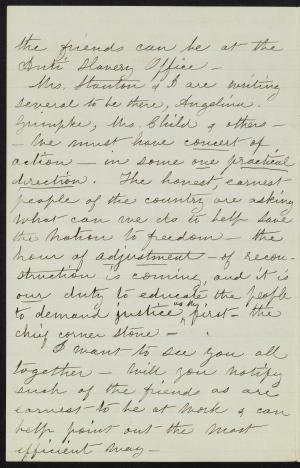 the friends can be at the
Anti Slavery Office –
Mrs. Stanton & I are writing
several to be there, Angelina.
Grimpke, Mrs. Child & others –
– We must have concert of
action – in some one practical
direction. The honest, earnest
people of the country are asking
what can we do to help save
the Nation to freedom – the
hour of adjustment – of recon-
struction is coming, and it is
our duty to educate the people
to demand justice, as the first – the
chief corner stone –
I want to see you all
together – Will you notify
such of the friends as are
earnest to be at work & can
help point out the most
efficient way –